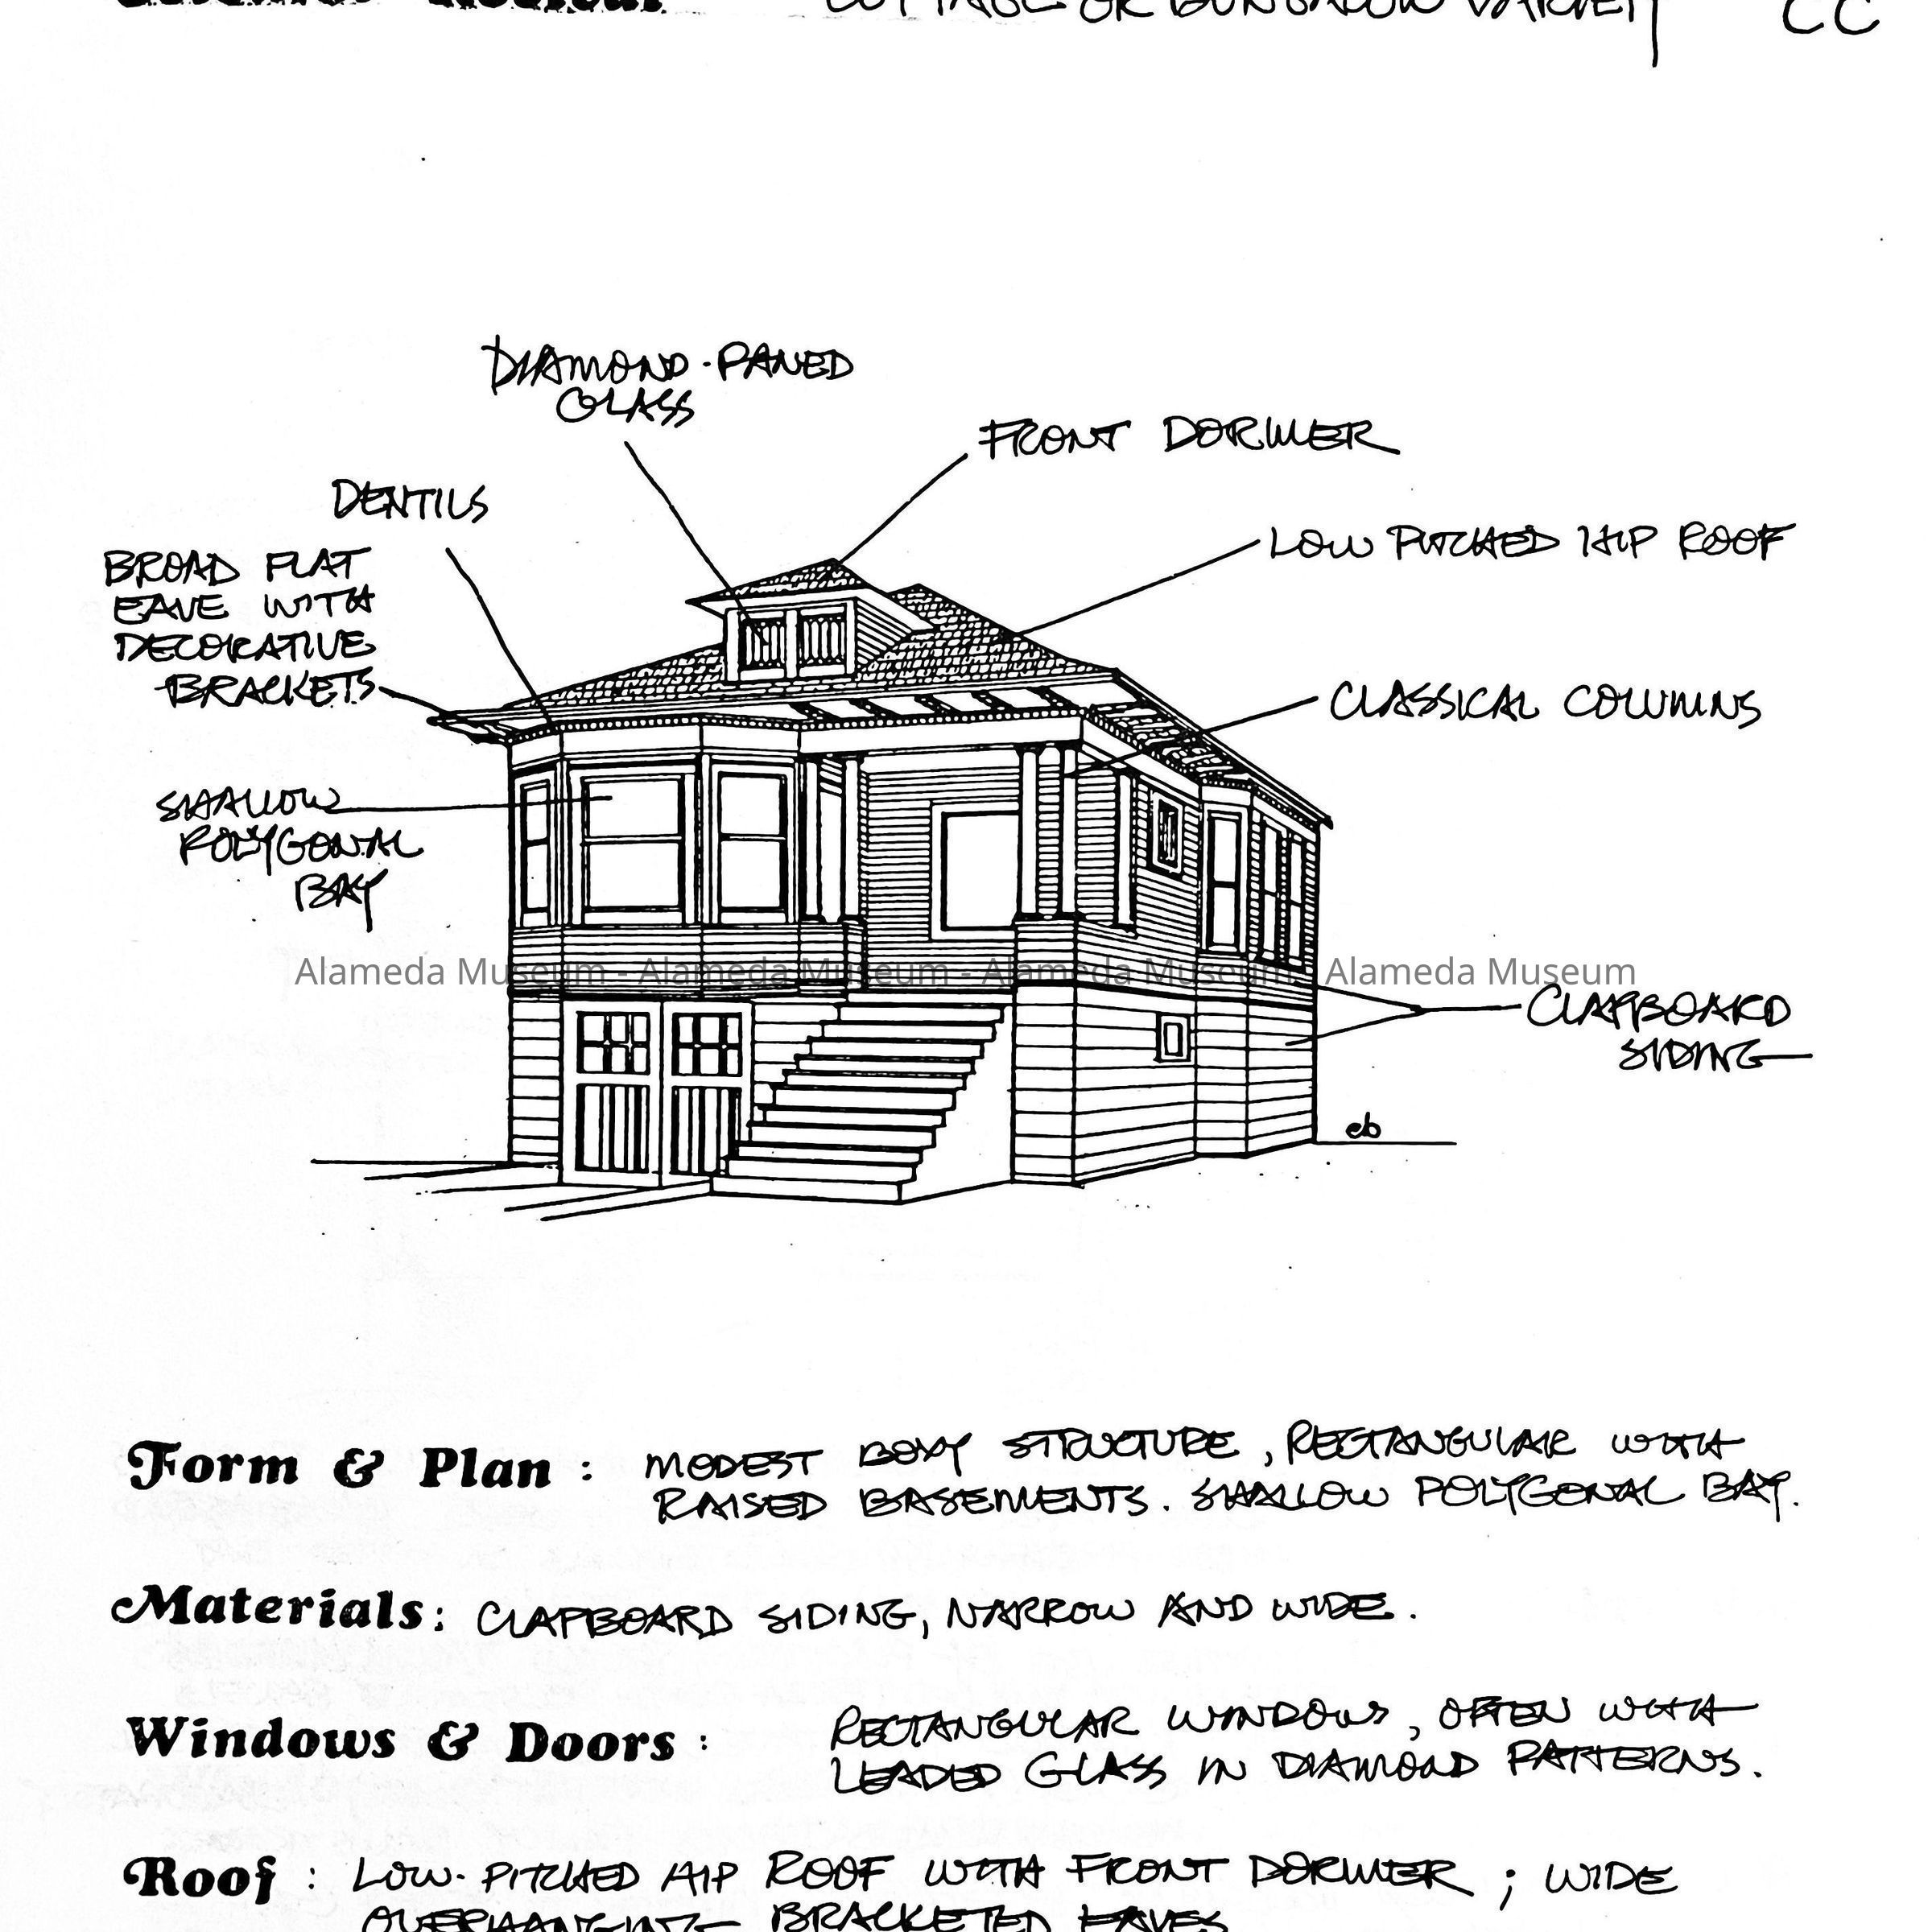 COTTAGE OR BUNGALOW VARIETY CC
DIAMOND-PANED
GLASS
FRONT DORMER
DENTILS
LOW PITCHED HIP ROOF
BROAD FLAT
EAVE WITH
DECORATIVE
BRACKETS
CLASSICAL COLUMNS
SHALLOW
POLYGONAL
BAY
Alameda Museum - Alameda Museum - Alameda Museum - Alameda Museum
CLAPBOARD
SIDING
eb
Form & Plan : MODEST BOXY STRUCTURE, RECTANGULAR WITH
RAISED BASEMENTS. SHALLOW POLYGONAL BAY.
Materials: CLAPBOARD SIDING, NARROW AND WIDE.
Windows & Doors : RECTANGULAR WINDOWS, OFTEN WITH
LEADED GLASS IN DIAMOND PATTERNS.
Roof : LOW-PITCHED HIP ROOF WITH FRONT DORMER ; WIDE
OVERHANGING BRACKETED EAVES